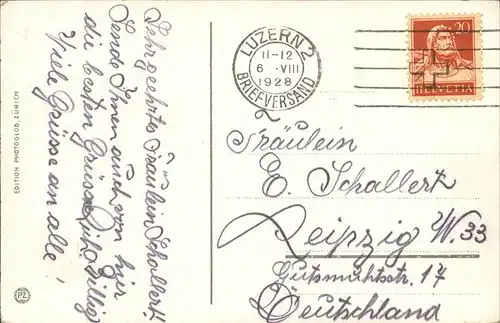 Sehr geehrtes Fräulein Schallert!
Sende Ihnen auch von hier
die besten Grüsse
Viele Grüsse an alle!
EDITION PHOTOGLOB, ZÜRICH
PZ
LUZERN 2
11-12
6. VIII
1928
BRIEFVERSAND
20
HELVETIA
Fräulein
E. Schallert
Leipzig W. 33
Gutsmuthsstr. 17
Deutschland